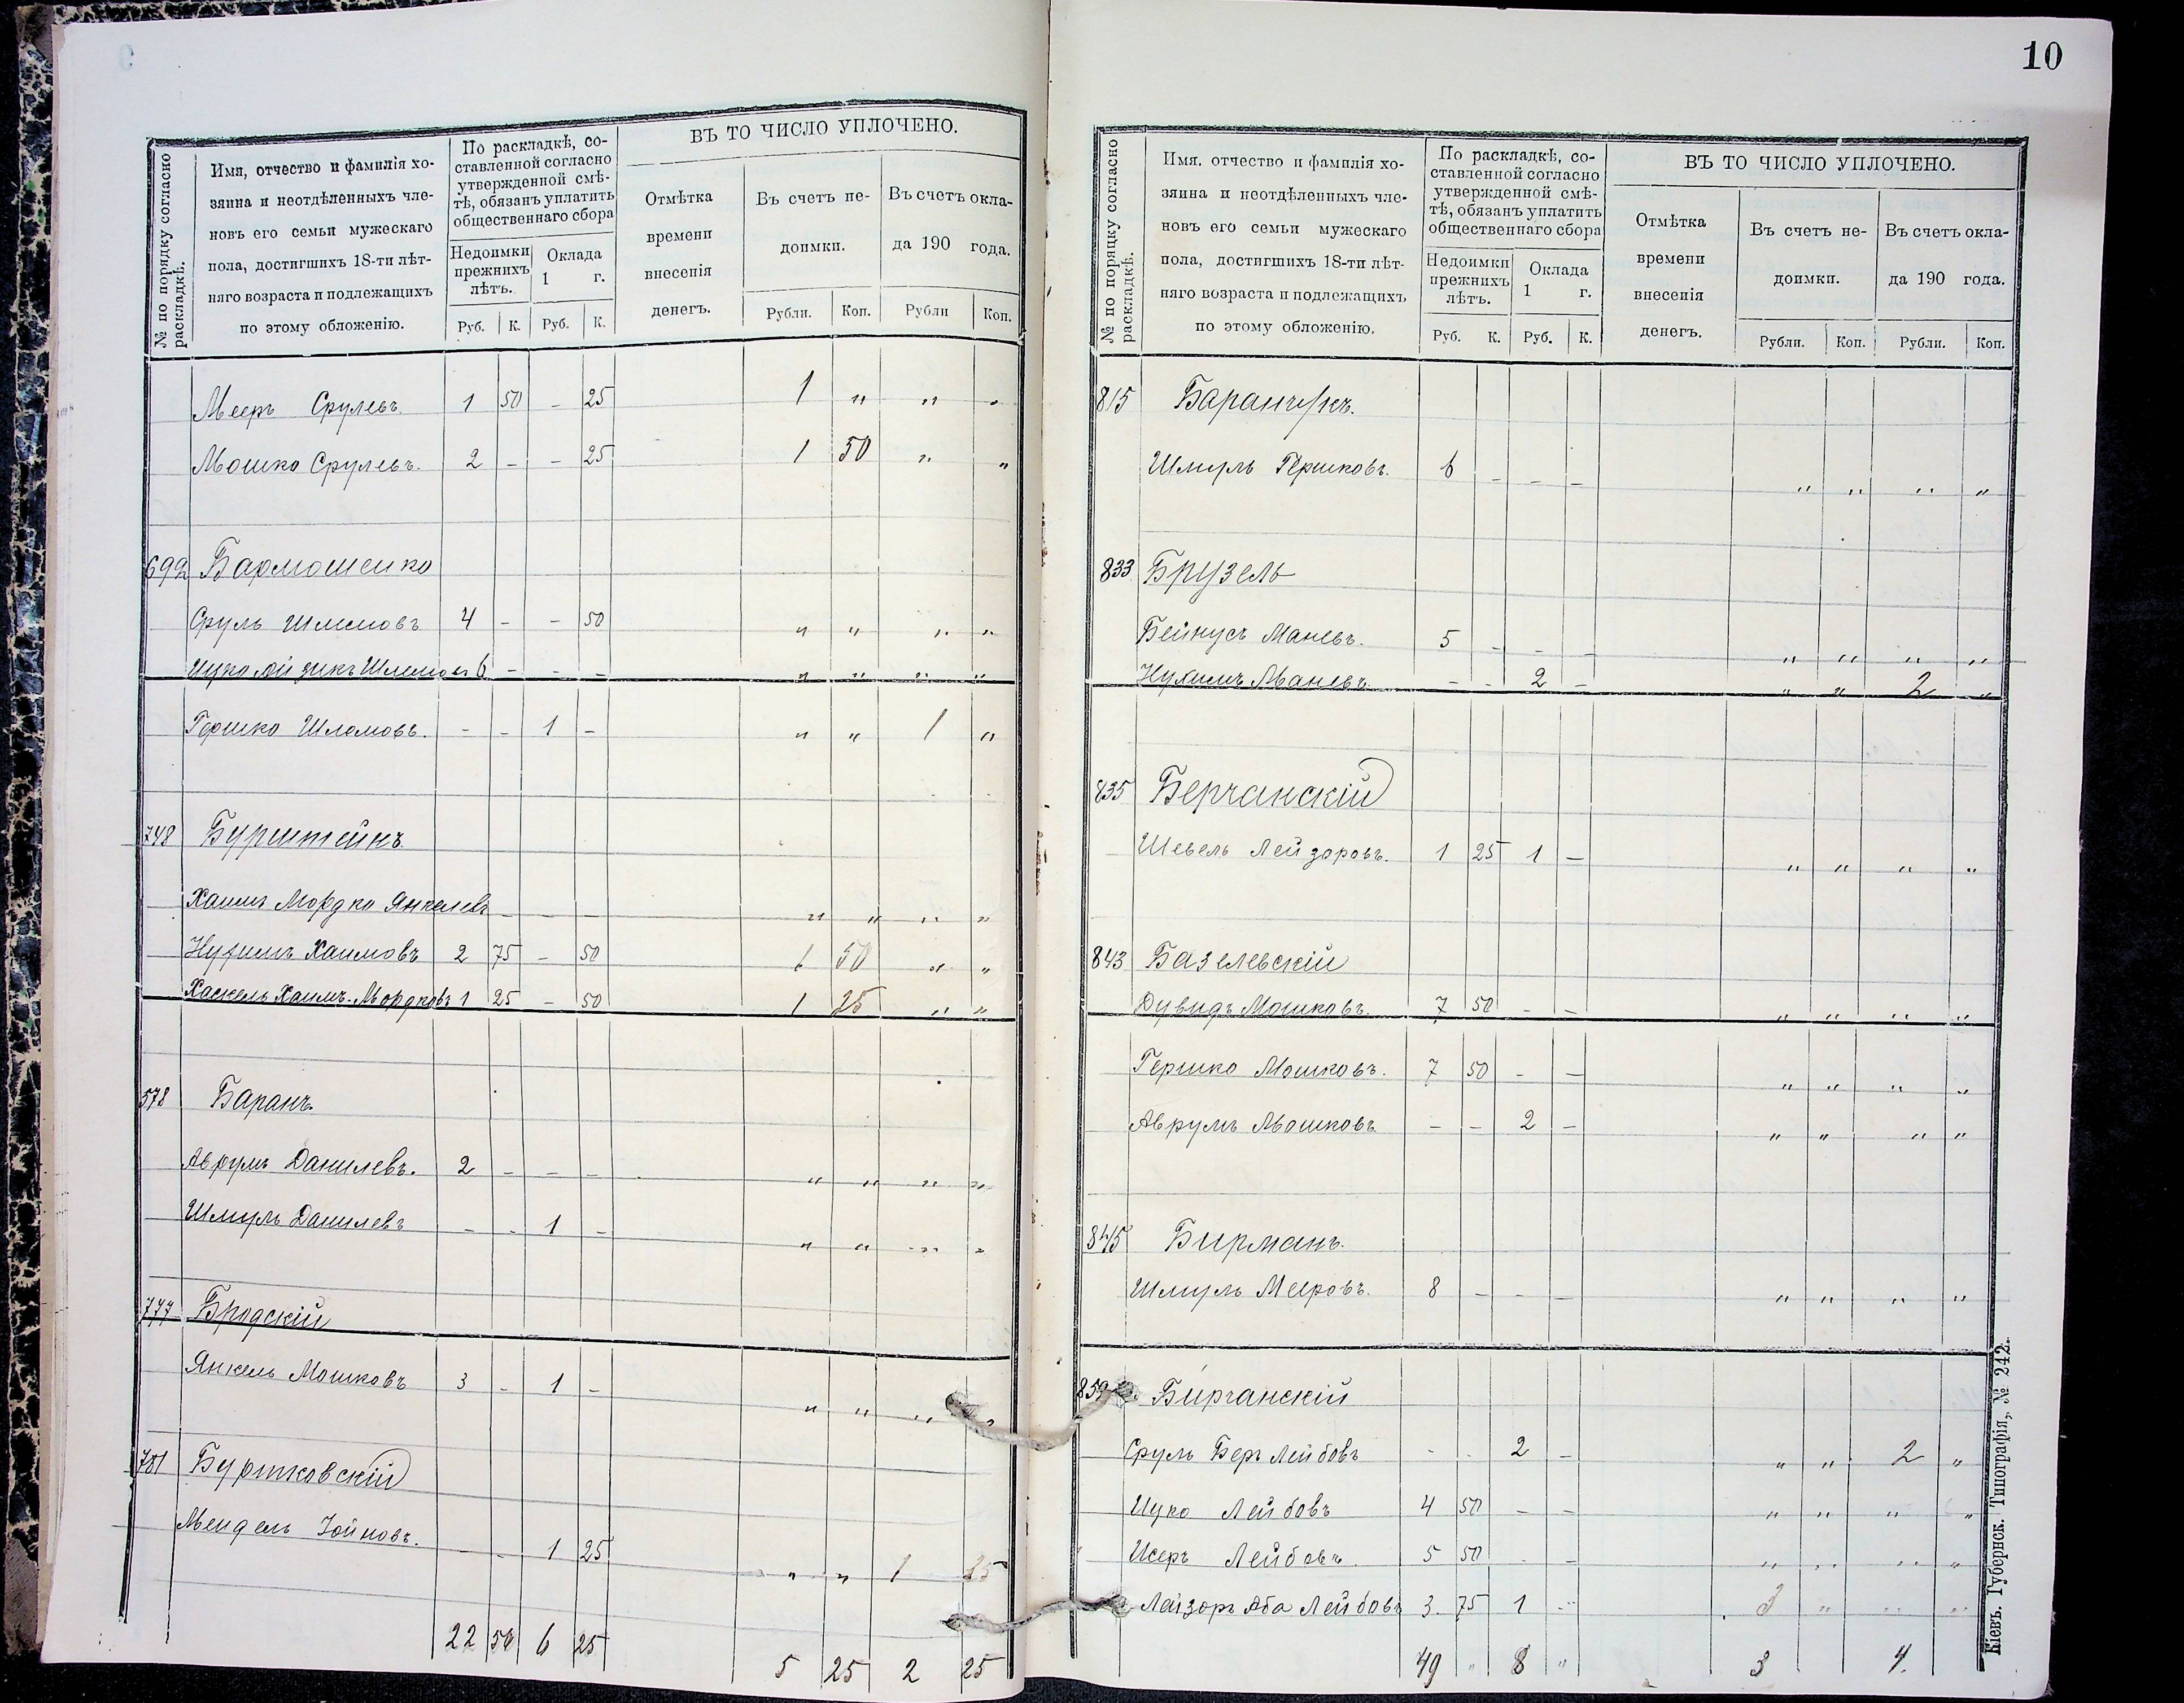 ВЪ ТО ЧИСЛО УПЛОЧЕНО.
№ по порядку согласно раскладкѣ.
Имя, отчество и фамилія хо-
зяина и неотдѣленныхъ чле-
новъ его семьи мужескаго
пола, достигшихъ 18-ти лѣт-
няго возраста и подлежащихъ
по этому обложенію.
По раскладкѣ, со-
ставленной согласно
утвержденной смѣ-
тѣ, обязанъ уплатить
общественнаго сбора
Недоимки прежнихъ лѣтъ.
Оклада 1 г.
Отмѣтка времени внесенія денегъ.
Въ счетъ не-
доимки.
Въ счетъ окла-
да 190 года.
Руб. К. Руб. К. Рубли. Коп. Рубли Коп.
Мееръ Срулевъ 1 50 - 25 1 " " "
Мошко Срулевъ. 2 - - 25 1 50 " "
692 Бармошенко
Сруль Шлемовъ 4 - - 50 " " " "
Ицко Айзикъ Шлемовъ 6 - - - " " " "
Гершко Шлемовъ. - - 1 - " " 1 "
748 Бурштейнъ
Хаимъ Мордко Янкелевъ - - - " " " "
Нухимъ Хаимовъ 2 75 - 50 1 50 " "
Хаскель Хаимъ-Мордковъ 1 25 - 50 1 25 " "
578 Баранъ.
Аврумъ Данилевъ. 2 - - - " " " "
Шмуль Данилевъ - - 1 - " " " "
777 Бродскій
Янкель Мошковъ 3 - 1 - " " " "
781 Бурштовскій
Мендель Іойновъ. - - 1 25 " " 1 25
22 50 6 25 5 25 2 25
10
№ по порядку согласно раскладкѣ.
Имя. отчество и фамилія хо-
зяина и неотдѣленныхъ чле-
новъ его семьи мужескаго
пола, достигшихъ 18-ти лѣт-
няго возраста и подлежащихъ
по этому обложенію.
По раскладкѣ, со-
ставленной согласно
утвержденной смѣ-
тѣ, обязанъ уплатить
общественнаго сбора
Недоимки прежнихъ лѣтъ.
Оклада 1 г.
ВЪ ТО ЧИСЛО УПЛОЧЕНО.
Отмѣтка времени внесенія денегъ.
Въ счетъ не-
доимки.
Въ счетъ окла-
да 190 года.
Руб. К. Руб. К. Рубли. Коп. Рубли. Коп.
815 Баранчукъ.
Шмуль Гершковъ. 6 - - - " " " "
833 Брузель
Бейнусъ Маневъ. 5 - - - " " " "
Нухимъ Маневъ. - - 2 - " " 2 "
835 Берчанскій
Шевель Лейзоровъ. 1 25 1 - " " " "
843 Базелевскій
Дувидъ Мошковъ 7 50 - - " " " "
Гершко Мошковъ. 7 50 - - " " " "
Аврумъ Мошковъ - - 2 - " " " "
845 Бирманъ.
Шмуль Меировъ. 8 - - - " " " "
859 Бирчанскій
Сруль Беръ Лейбовъ - - 2 - " " 2 "
Ицко Лейбовъ 4 50 - - " " " "
Исеръ Лейбовъ 5 50 - - " " " "
Лейзоръ Аба Лейбовъ 3 75 1 - 3 " " "
49 " 8 " 3 4.
Кіевъ. Губернск. Типографія, № 242.